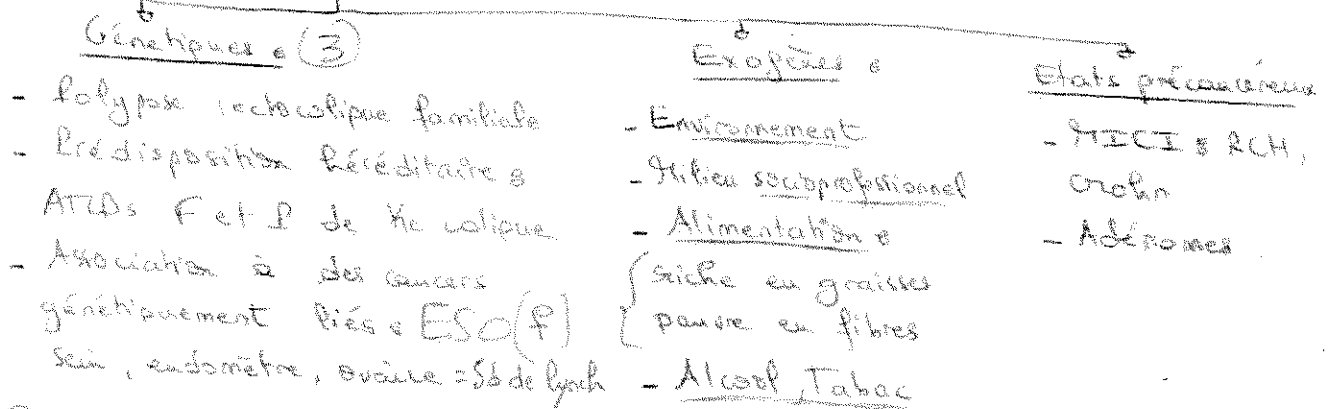 Génétiques : (3)
- Polypose rectocolique familiale
- Prédisposition héréditaire :
ATCDs F et P de Kc colique
- Association à des cancers
génétiquement liés : ESO(f)
Sein, endomètre, ovaire = Sd de lynch
Exogènes :
- Environnement
- Milieu socioprofessionnel
- Alimentation :
{ riche en graisses
{ pauvre en fibres
- Alcool, Tabac
Etats précancéreux
- MICI : RCH,
Crohn
- Adénomes